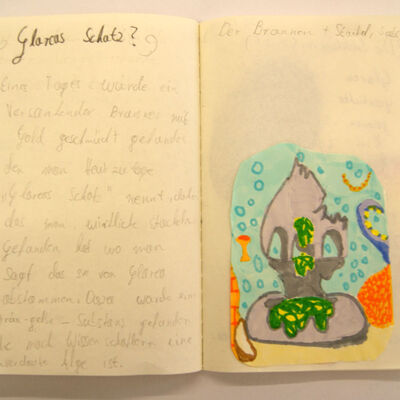 Glarcas Schatz?
Eines Tages wurde ein
Versunkender Brunnen mit
Gold geschmückt gefunden
den man Heut zu tage
„Glarcas Schatz" nennt,
das man wirkliche stacheln
Gefunden hat wo man
Sagt das sie von Glarca
abstammen. Dazu wurde ein
Substans gefunden
nach Wissenschaftlern eine
Alge ist.
Der Brunnen + Stachel,